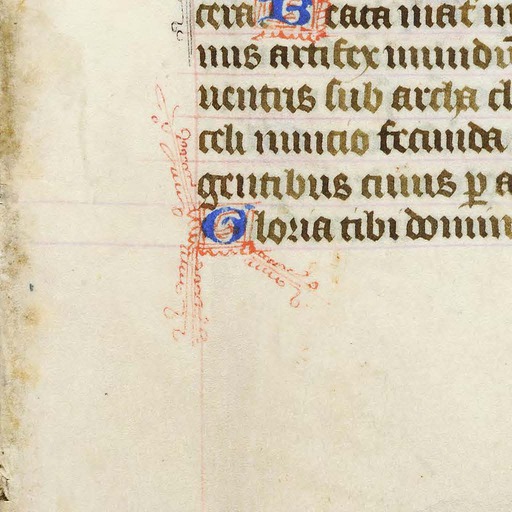 cera Beata mat m
nus artifex mundu
uentris sub archa cl
celi nuncio fecunda
gentibus cuius p a
Gloria tibi domin